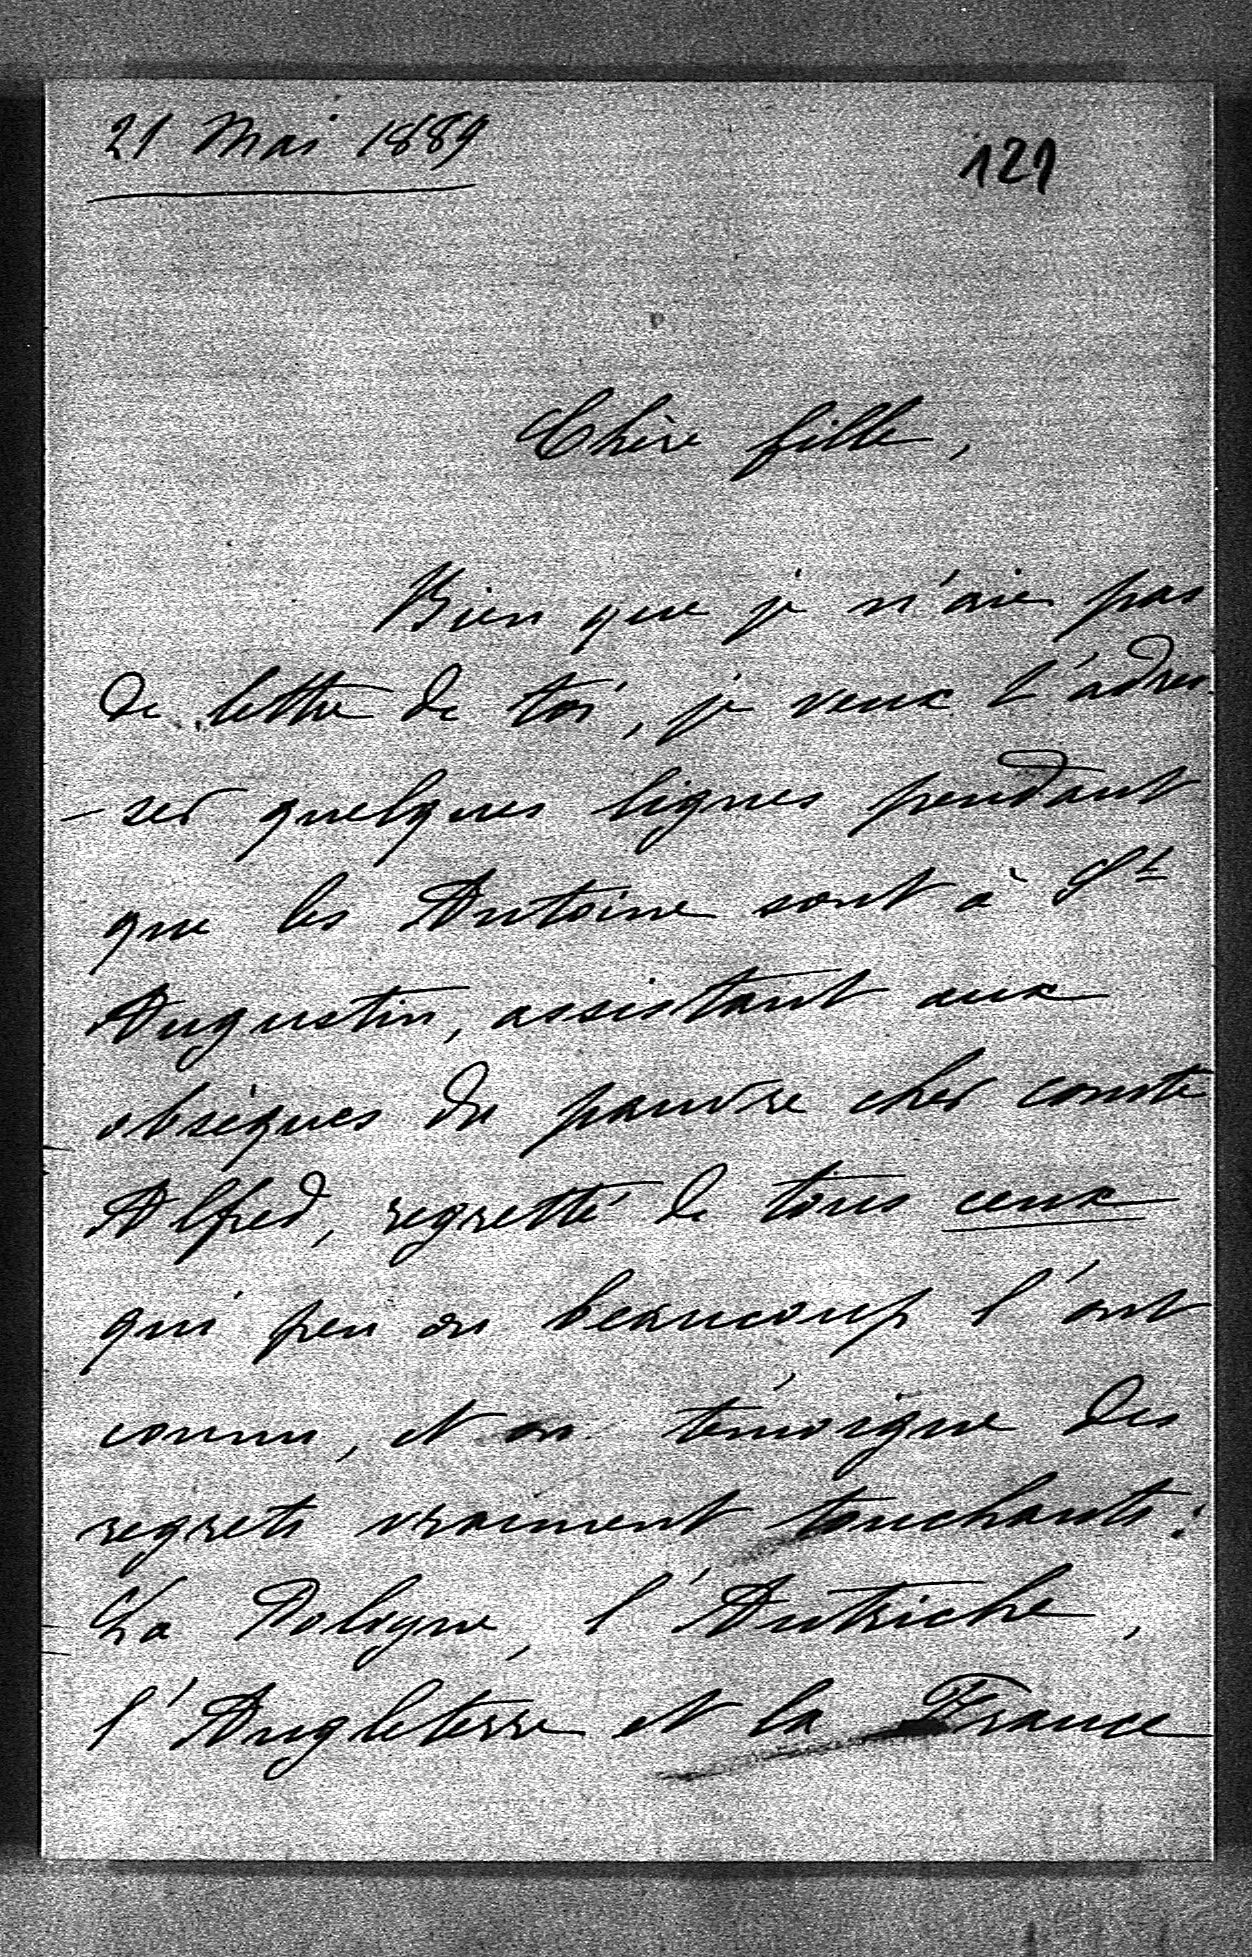 21 Mai 1889
121
Chère fille,
Bien que je n'aie pas
de lettre de toi, je veux t'adres
-ser quelques lignes pendant
que les Antoine sont à St
Augustin, assistant aux
obsèques du pauvre cher comte
Alfred, regretté de tous ceux
qui peu ou beaucoup l'ont
connu, et on témoigne des
regrets vraiment touchants:
La Pologne, l'Autriche,
l'Angleterre et la France